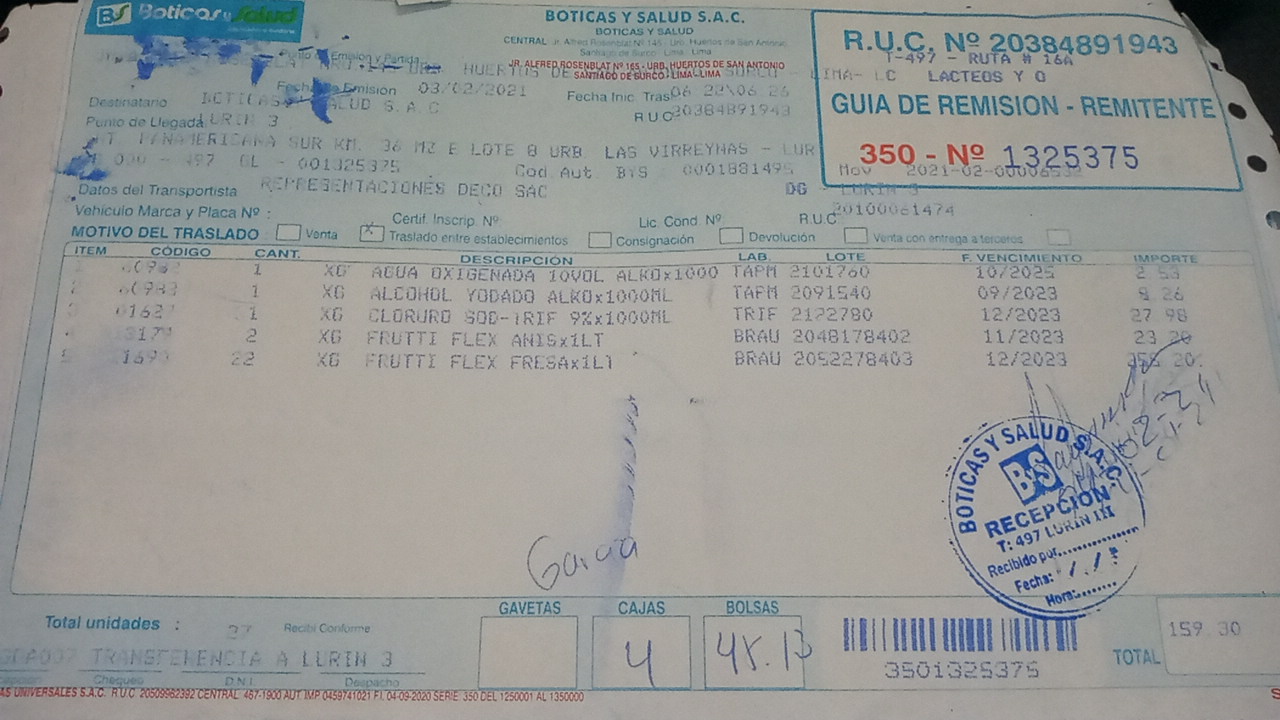 BS Boticas y Salud
BOTICAS Y SALUD S.A.C.
BOTICAS Y SALUD
CENTRAL Jr. Alfred Rosenblat Nº 145 - Urb. Huertos de San Antonio
Santiago de Surco - Lima - Lima
JR. ALFRED ROSENBLAT Nº 165 - URB. HUERTOS DE SAN ANTONIO
SANTIAGO DE SURCO - LIMA - LIMA
R.U.C. Nº 20384891943
T-497 - RUTA # 16A
LACTEOS Y O
GUIA DE REMISION - REMITENTE
350 - Nº 1325375
Mov 2021-02-
Emisión y Partida
URB HUERTOS DE SURCO - LIMA- LC
Fecha de Emisión 03/02/2021
Fecha Inic. Tras
Destinatario BOTICAS SALUD S.A.C
R U C 20384891943
Punto de Llegada LURIN 3
PANAMERICANA SUR KM. 36 MZ E LOTE 8 URB. LAS VIRREYNAS - LUR
000 - 497 GL - 001325375 Cod. Aut BYS : 0001881495
DG - LURIN 3
Datos del Transportista REPRESENTACIONES DECO SAC
20100061474
Vehículo Marca y Placa Nº : Certif. Inscrip. Nº Lic. Cond. Nº R.U.C
MOTIVO DEL TRASLADO Venta X Traslado entre establecimientos Consignación Devolución Venta con entrega a terceros
ITEM CÓDIGO CANT. DESCRIPCIÓN LAB. LOTE F. VENCIMIENTO IMPORTE
1 XG AGUA OXIGENADA 10VOL ALKOx1000 TAPM 2101760 10/2025 2 53
2 60983 1 XG ALCOHOL YODADO ALKOx1000ML TAPM 2091540 09/2023 26
1 XG CLORURO SOD-TRIF 9%x1000ML TRIF 2122780 12/2023 27 98
2 XG FRUTTI FLEX ANISx1LT BRAU 2048178402 11/2023 23 20
5 22 XG FRUTTI FLEX FRESAx1LT BRAU 2052278403 12/2023 20
BOTICAS Y SALUD S.A.C.
BS
RECEPCION
T: 497 LURIN III
Recibido por:
Fecha:
Hora:
Garcia
Total unidades : 27 Recibí Conforme
GAVETAS CAJAS BOLSAS
4
3501325375
TOTAL 159.30
TRANSFERENCIA A LURIN 3
Chequeo D.N.I. Despacho
AS UNIVERSALES S.A.C. R.U.C. 20509962392 CENTRAL 467-1900 AUT. IMP 0459741021 F.I. 04-09-2020 SERIE: 350 DEL 1250001 AL 1350000